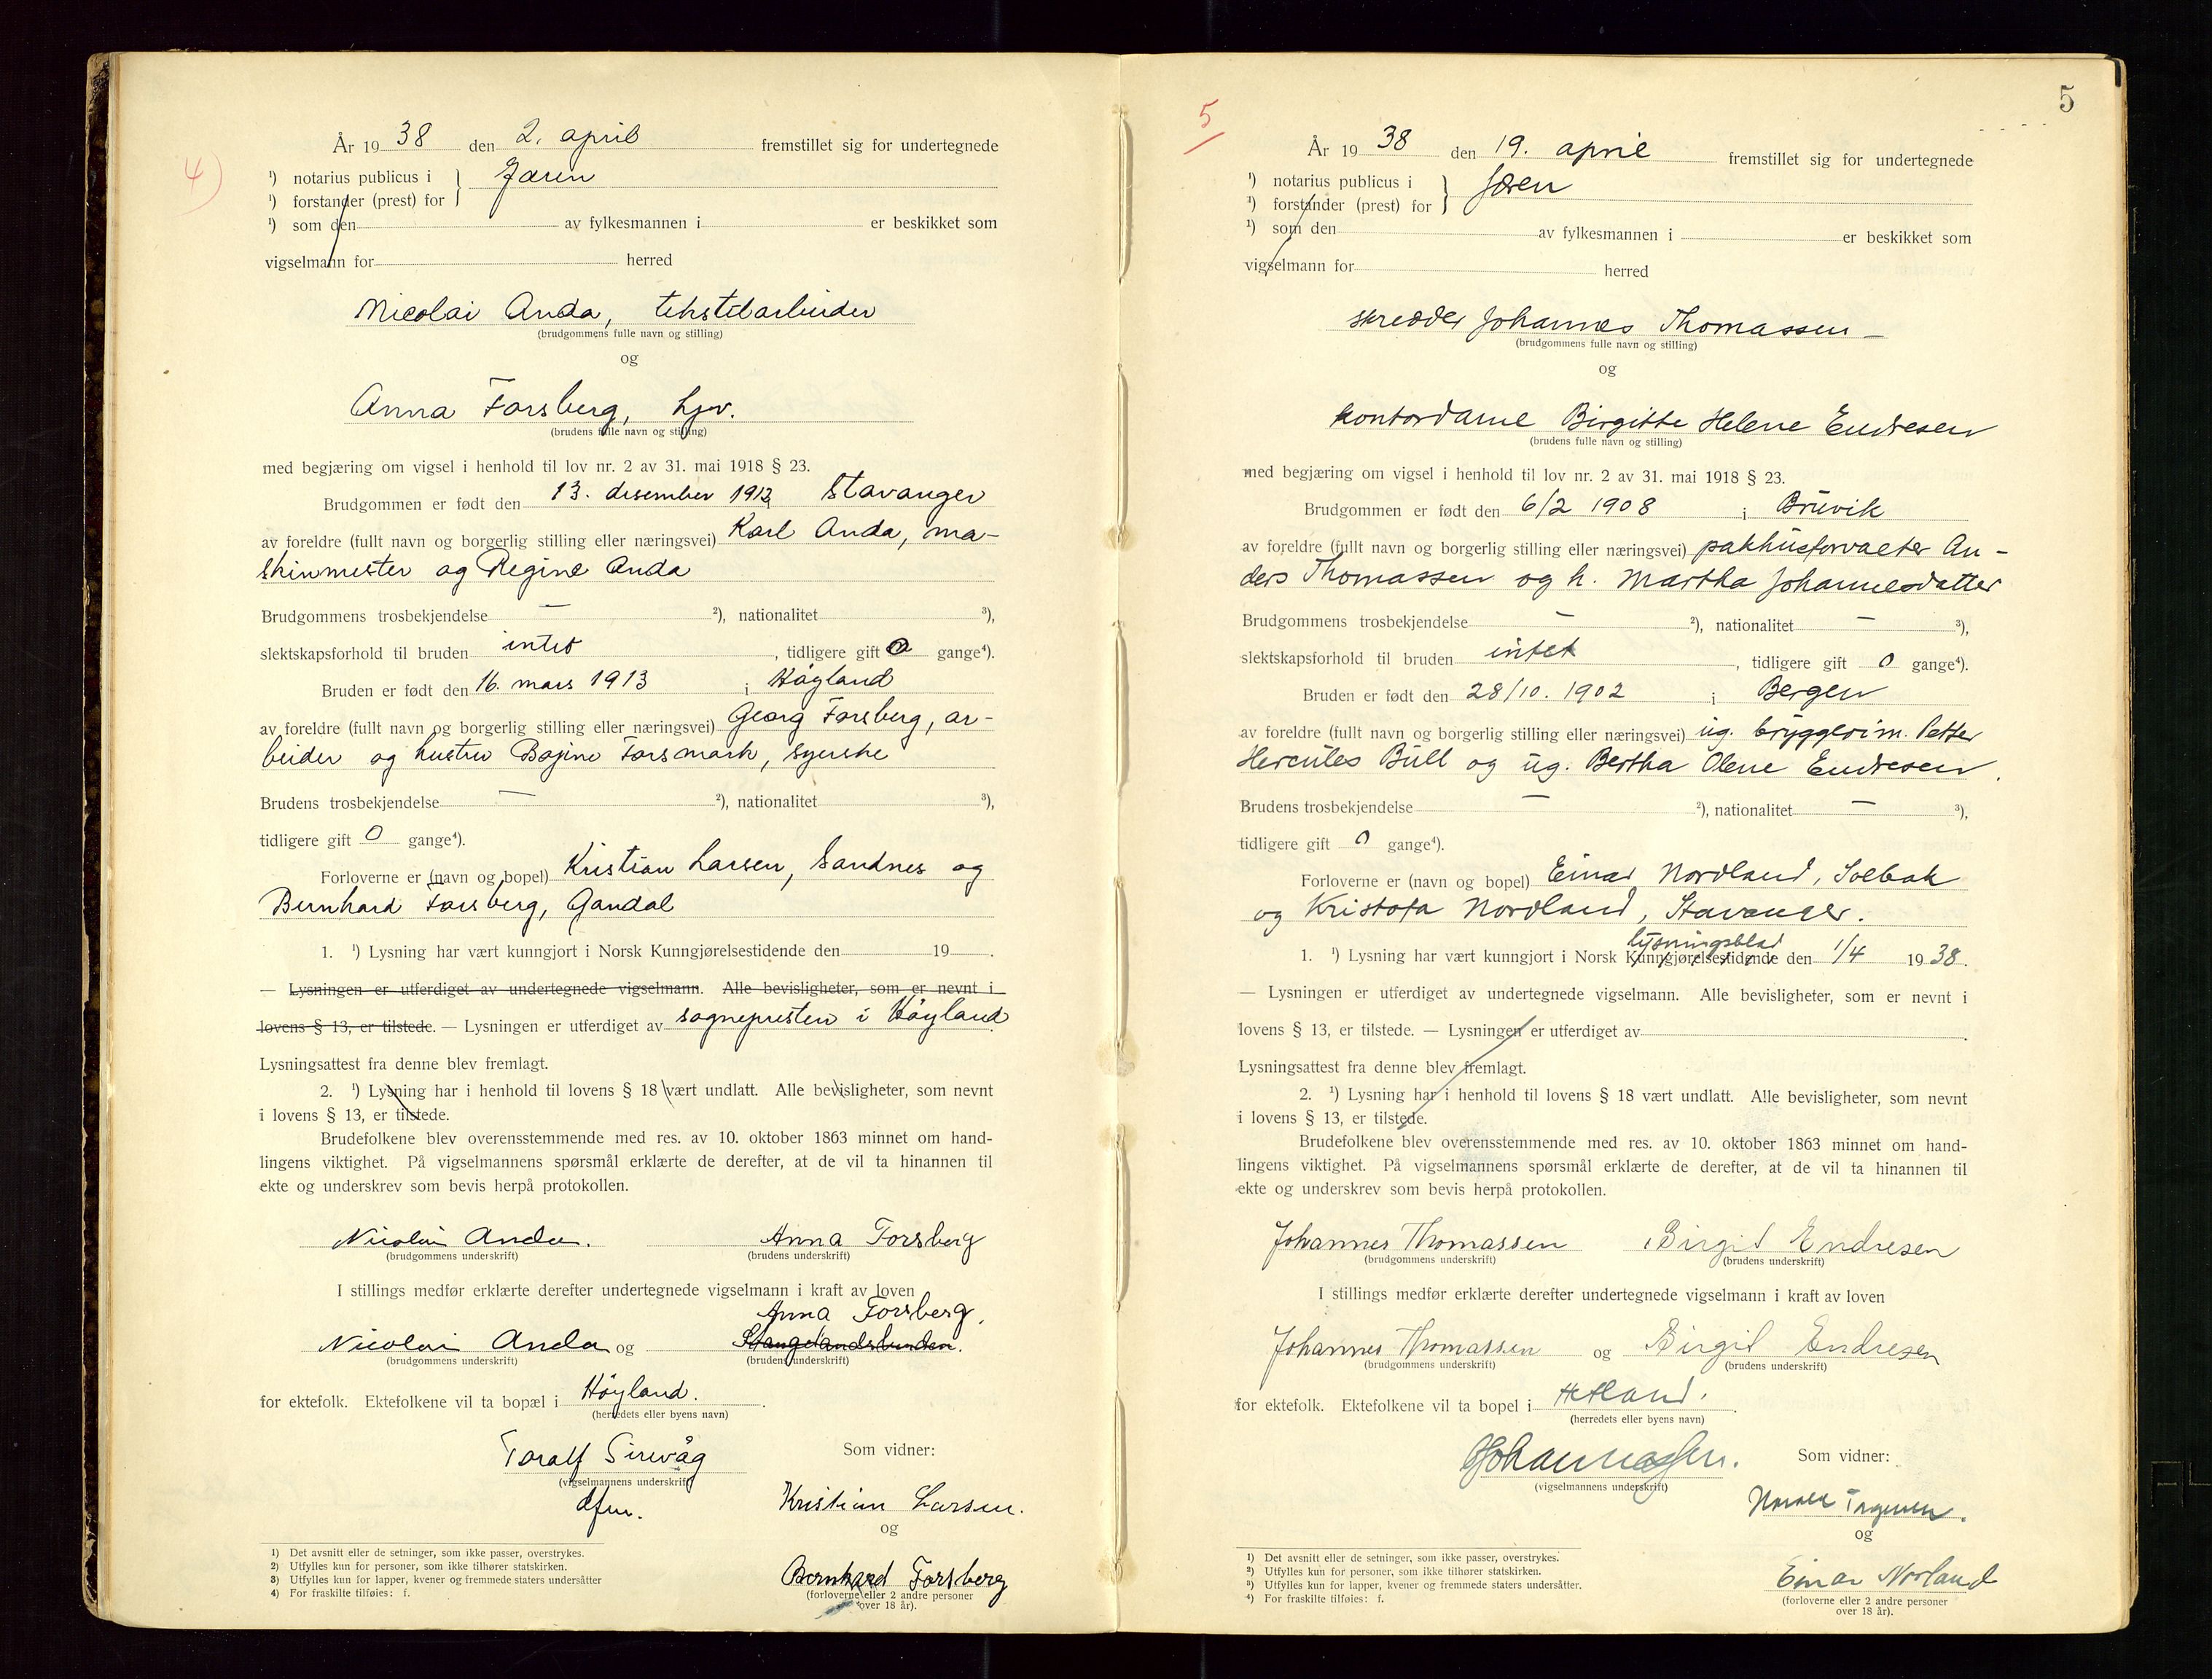 4)
År 1938 den 2. april fremstillet sig for undertegnede
¹) notarius publicus i } Jæren
¹) forstander (prest) for
¹) som den av fylkesmannen i er beskikket som
vigselmann for herred
Nicolai Anda, tekstilarbeider
(brudgommens fulle navn og stilling)
og
Anna Forsberg, hjv.
(brudens fulle navn og stilling)
med begjæring om vigsel i henhold til lov nr. 2 av 31. mai 1918 § 23.
Brudgommen er født den 13. desember 1912 Stavanger
av foreldre (fullt navn og borgerlig stilling eller næringsvei) Karl Anda, ma-
skinmester og Regine Anda
Brudgommens trosbekjendelse — ²), nationalitet ³),
slektskapsforhold til bruden intet , tidligere gift 0 gange⁴).
Bruden er født den 16. mars 1913 i Høyland
av foreldre (fullt navn og borgerlig stilling eller næringsvei) Georg Forsberg, ar-
beider og hustru Forsmark, syerske
Brudens trosbekjendelse — ²), nationalitet ³),
tidligere gift 0 gange⁴).
Forloverne er (navn og bopel) Kristian Larsen, Sandnes og
Bernhard Forsberg, Gandal
1. ¹) Lysning har vært kunngjort i Norsk Kunngjørelsestidende den 19 .
— Lysningen er utferdiget av undertegnede vigselmann. Alle bevisligheter, som er nevnt i
lovens § 13, er tilstede. — Lysningen er utferdiget av sognepresten i Høyland
Lysningsattest fra denne blev fremlagt.
2. ¹) Lysning har i henhold til lovens § 18 vært undlatt. Alle bevisligheter, som nevnt
i lovens § 13, er tilstede.
Brudefolkene blev overensstemmende med res. av 10. oktober 1863 minnet om hand-
lingens viktighet. På vigselmannens spørsmål erklærte de derefter, at de vil ta hinannen til
ekte og underskrev som bevis herpå protokollen.
Nicolai Anda. Anna Forsberg
(brudgommens underskrift) (brudens underskrift)
I stillings medfør erklærte derefter undertegnede vigselmann i kraft av loven
Anna Forsberg.
Nicolai Anda og Stangelandsbunden.
(brudgommens underskrift) (brudens underskrift)
for ektefolk. Ektefolkene vil ta bopæl i Höyland.
(herredets eller byens navn)
Toralf Sirevåg Som vidner:
(vigselmannens underskrift)
dfm. Kristian Larsen.
og
Bernhard Forsberg
(forloverne eller 2 andre personer
over 18 år).
1) Det avsnitt eller de setninger, som ikke passer, overstrykes.
2) Utfylles kun for personer, som ikke tilhører statskirken.
3) Utfylles kun for lapper, kvener og fremmede staters undersåtter
4) For fraskilte tilføies: f.
5
5
År 1938 den 19. april fremstillet sig for undertegnede
¹) notarius publicus i } Jæren
¹) forstander (prest) for
¹) som den av fylkesmannen i er beskikket som
vigselmann for herred
skredder Johannes Thomassen —
(brudgommens fulle navn og stilling)
og
kontordame Birgitte Helene Endresen
(brudens fulle navn og stilling)
med begjæring om vigsel i henhold til lov nr. 2 av 31. mai 1918 § 23.
Brudgommen er født den 6/2 1908 i Bruvik
av foreldre (fullt navn og borgerlig stilling eller næringsvei) pakhusforvalter An-
ders Thomassen og h. Martha Johannesdatter
Brudgommens trosbekjendelse — ²), nationalitet — ³),
slektskapsforhold til bruden intet , tidligere gift 0 gange⁴).
Bruden er født den 28/10. 1902 i Bergen
av foreldre (fullt navn og borgerlig stilling eller næringsvei) ug. Petter
Hercules Bull og ug. Bertha Olene Endresen.
Brudens trosbekjendelse — ²), nationalitet — ³),
tidligere gift 0 gange⁴).
Forloverne er (navn og bopel) Einar Nordland, Solbak
og Kristofa Nordland, Stavanger.
lysningsblad
1. ¹) Lysning har vært kunngjort i Norsk Kunngjørelsestidende den 1/4 1938.
— Lysningen er utferdiget av undertegnede vigselmann. Alle bevisligheter, som er nevnt i
lovens § 13, er tilstede. — Lysningen er utferdiget av .
Lysningsattest fra denne blev fremlagt.
2. ¹) Lysning har i henhold til lovens § 18 vært undlatt. Alle bevisligheter, som nevnt
i lovens § 13, er tilstede.
Brudefolkene blev overensstemmende med res. av 10. oktober 1863 minnet om hand-
lingens viktighet. På vigselmannens spørsmål erklærte de derefter, at de vil ta hinannen til
ekte og underskrev som bevis herpå protokollen.
Johannes Thomassen Birgit Endresen
(brudgommens underskrift) (brudens underskrift)
I stillings medfør erklærte derefter undertegnede vigselmann i kraft av loven
Johannes Thomassen og Birgit Endresen
(brudgommens underskrift) (brudens underskrift)
for ektefolk. Ektefolkene vil ta bopel i Hetland.
(herredets eller byens navn)
Som vidner:
(vigselmannens underskrift)
og
Einar Norland
(forloverne eller 2 andre personer
over 18 år).
1) Det avsnitt eller de setninger, som ikke passer, overstrykes.
2) Utfylles kun for personer, som ikke tilhører statskirken.
3) Utfylles kun for lapper, kvener og fremmede staters undersåtter.
4) For fraskilte tilføies: f.